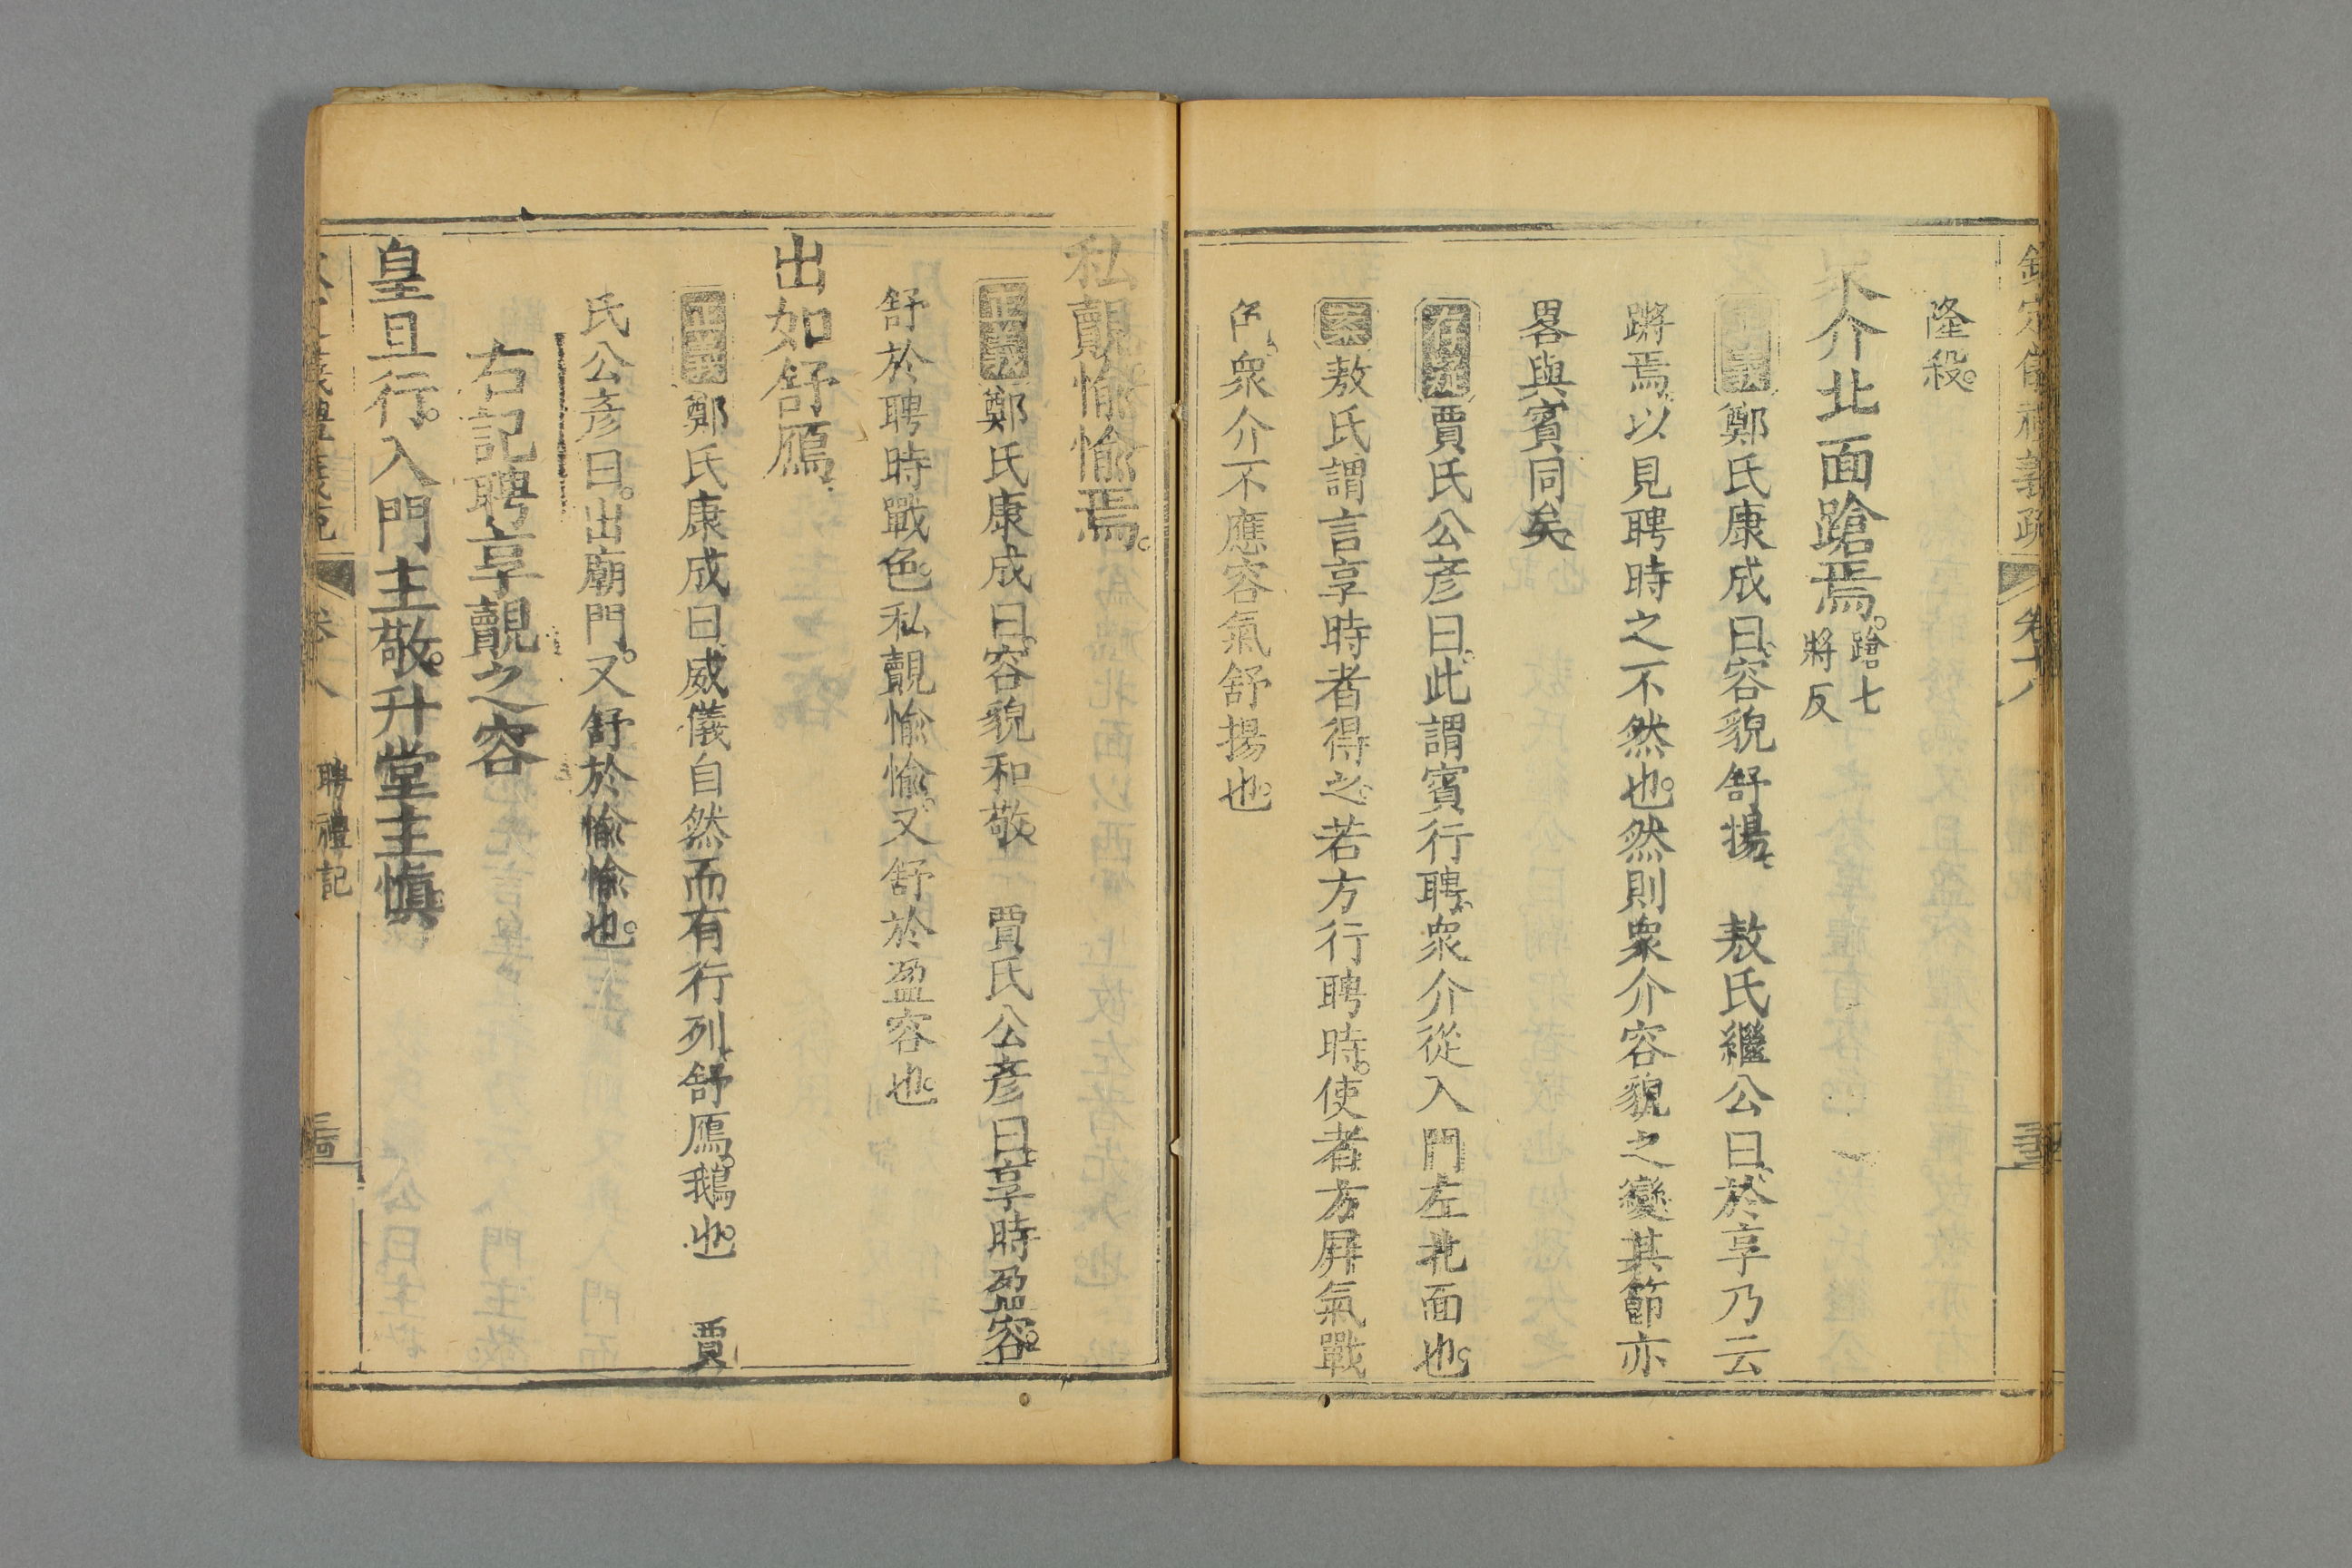 欽定儀禮義疏 卷十八
隆殺。
衆介北面蹌焉。蹌七將反
正義鄭氏康成曰、容貌舒揚、 敖氏繼公曰、於享乃云
蹡焉、以見聘時之不然也。然則衆介容貌之變其節亦
畧與賓同矣、
存疑賈氏公彦曰、此謂賓行聘、衆介從入門左北面也。
案敖氏謂言享時者得之、若方行聘時。使者方屏氣戰
色、衆介不應容氣舒揚也。
私覿愉愉焉。
正義鄭氏康成曰、容貌和敬、 賈氏公彦曰、享時盈容。
舒於聘時戰色。私覿愉愉。又舒於盈容也。
出如舒鴈、
正義鄭氏康成曰、威儀自然而有行列、舒鴈、鵝也。 賈
氏公彦曰。出廟門。又舒於愉愉也。
右記聘享覿之容
皇且行。入門主敬。升堂主慎。
義禮義疏 卷十八 聘禮記